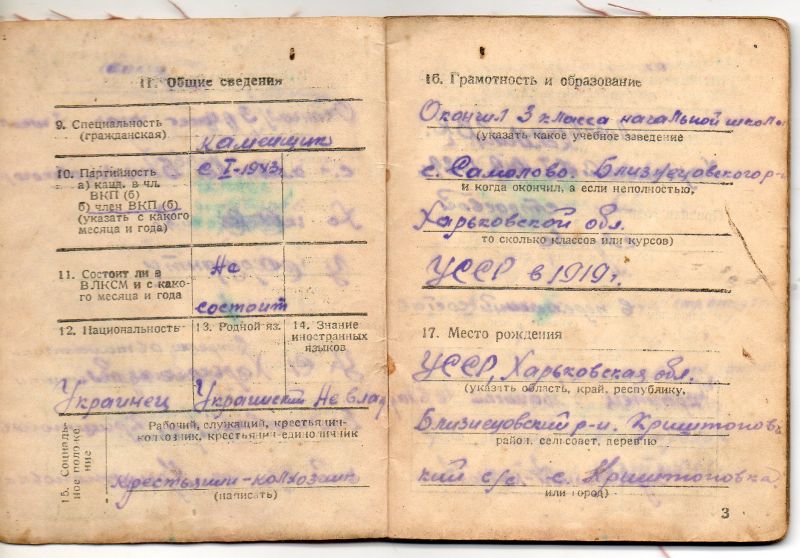 II. Общие сведения
9. Специальность
(гражданская)
каменщик
10. Партийность
а) канд. в чл.
ВКП (б)
б) член ВКП (б)
(указать с какого
месяца и года)
с I-1943г.
11. Состоит ли в
ВЛКСМ и с како-
го месяца и года
Не
состоит
12. Национальность
Украинец
13. Родной яз.
Украинский
14. Знание
иностранных
языков
Не влад
15. Социаль-
ное положе-
ние
Рабочий, служащий, крестьянин-
колхозник, крестьянин-единоличник
Крестьянин-колхозник
(написать)
16. Грамотность и образование
Окончил 3 класса начальной школы
(указать какое учебное заведение
с. Самолово. Близнецовского р-
и когда окончил, а если неполностью,
Харьковской обл.
то сколько классов или курсов)
УССР в 1919 г.
17. Место рождения
УССР, Харьковская обл.
(указать область, край, республику,
Близнецовский р-н. Криштопов
район, сельсовет, деревню
кий с/с с. Криштоповка
или город)
3